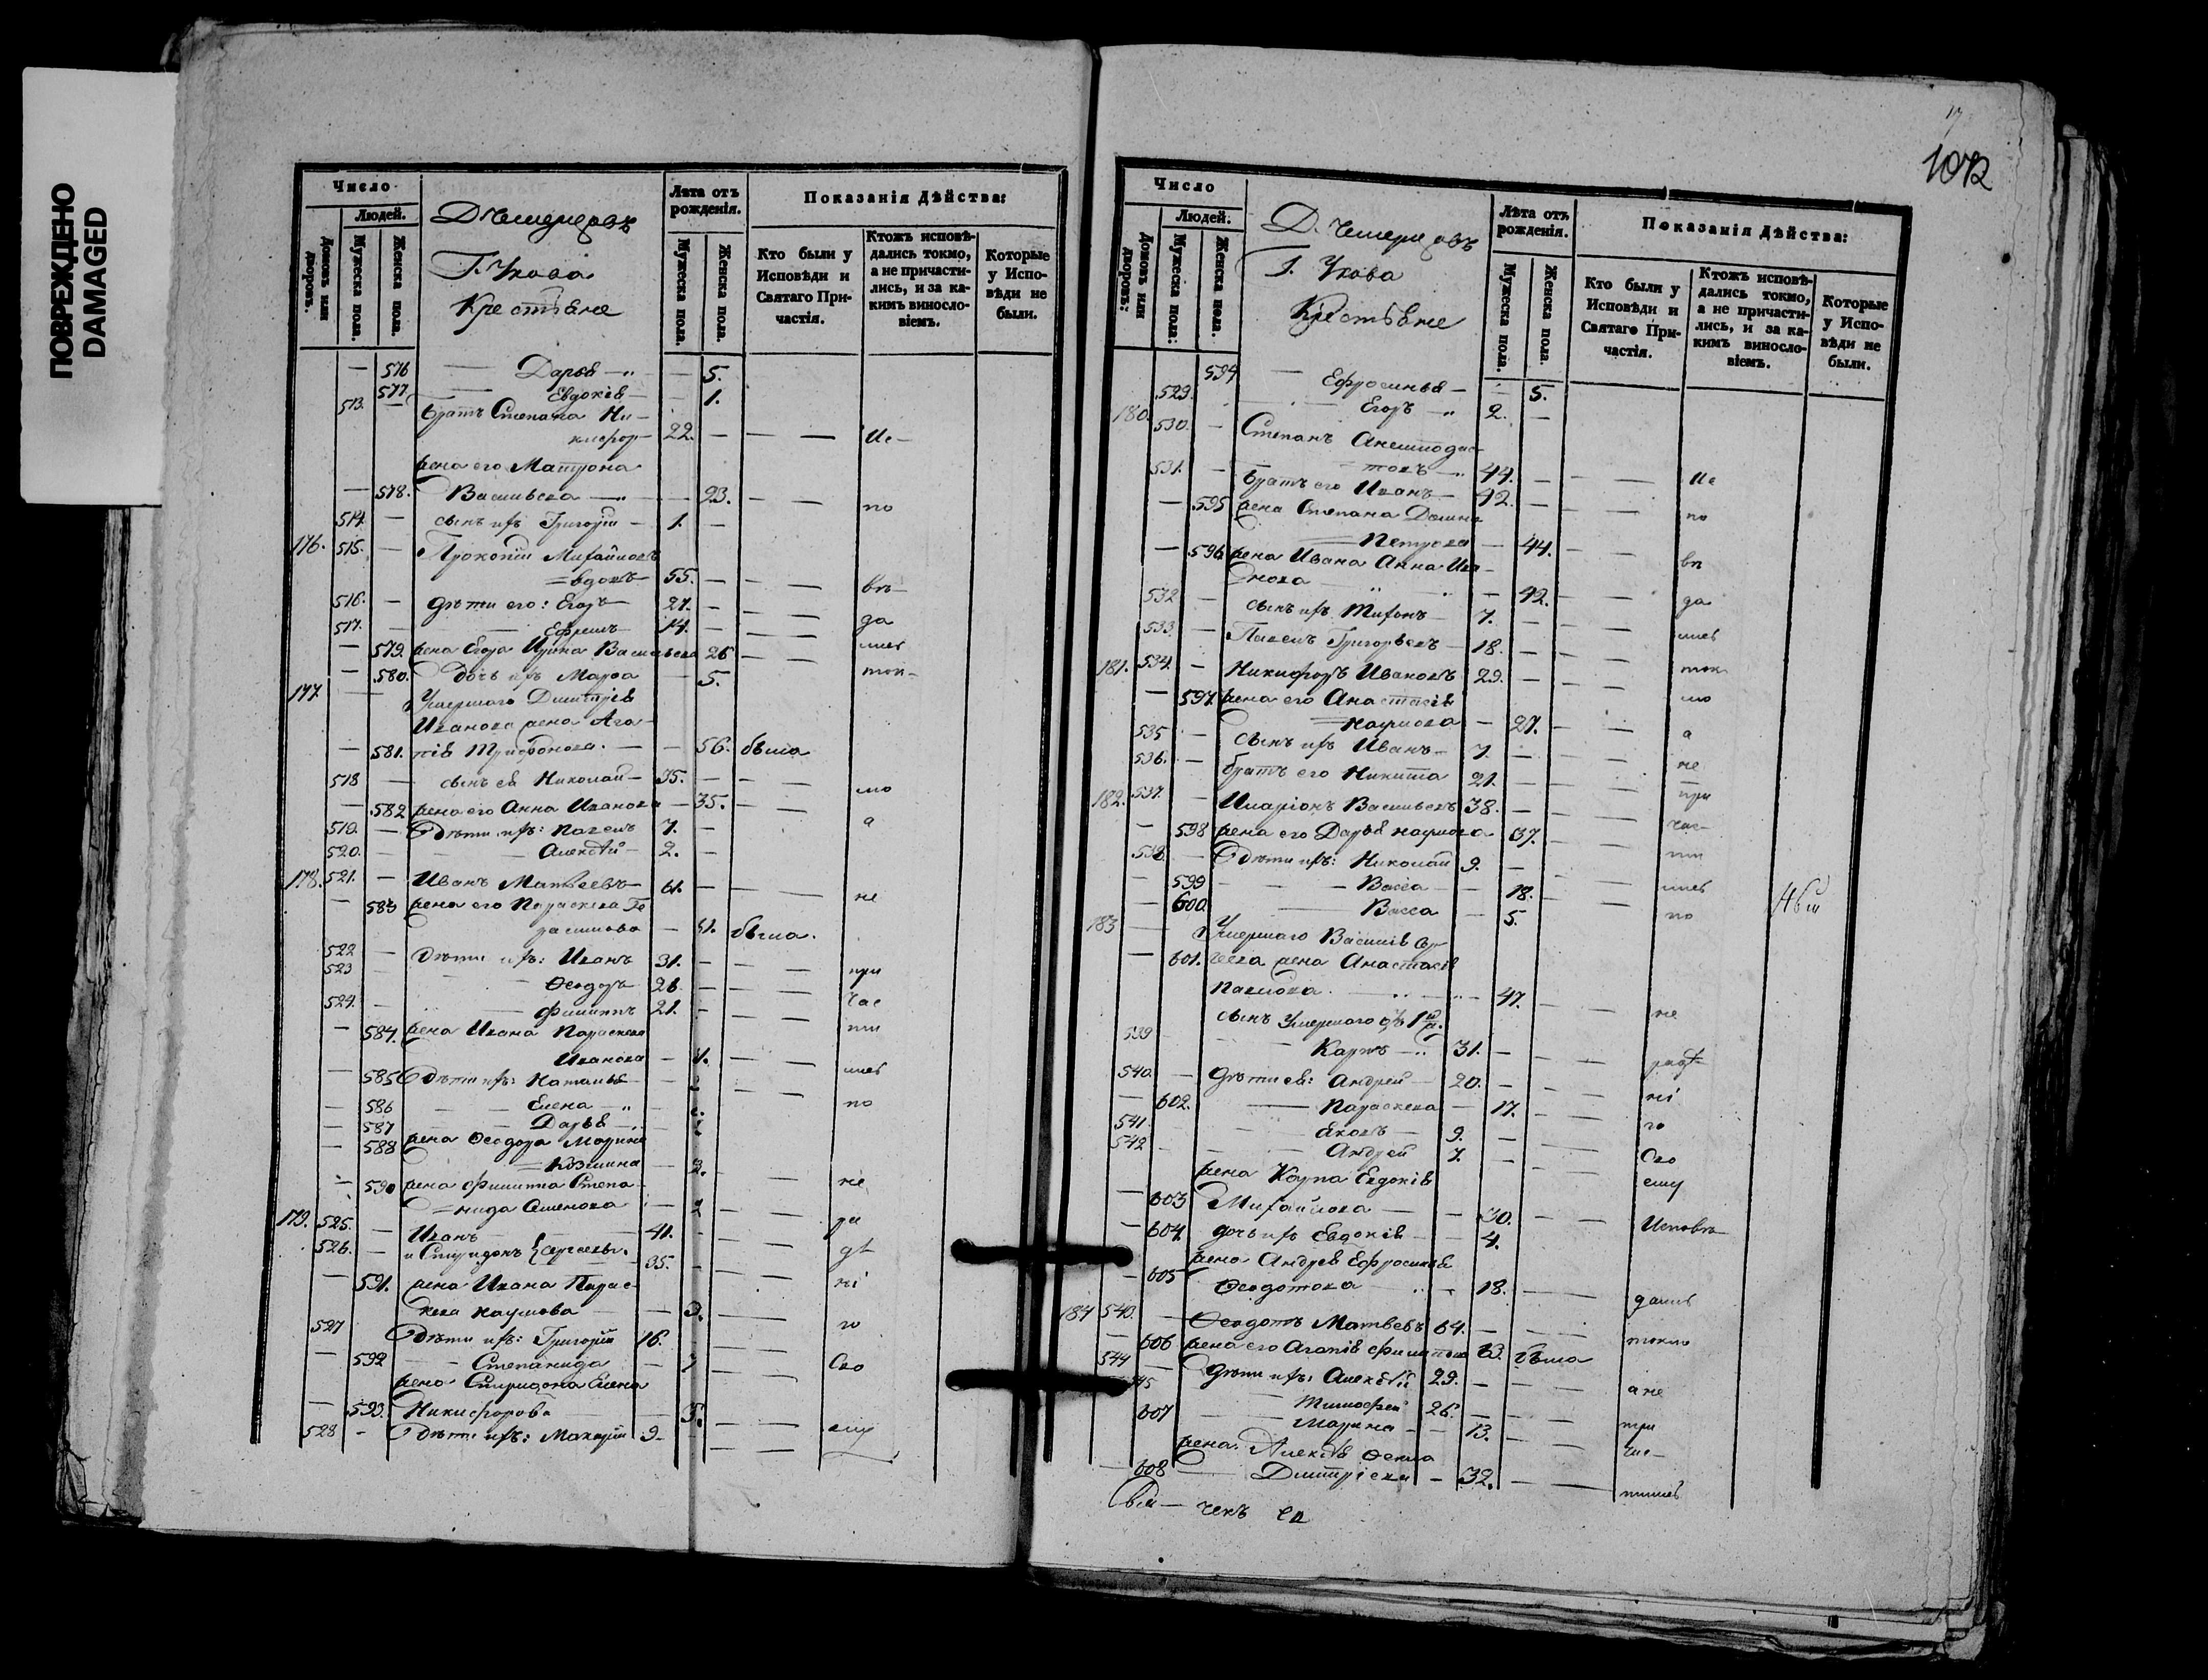 ПОВРЕЖДЕНО
DAMAGED
1072
Число
Людей.
Домовъ или дворовъ.
Мужеска пола.
Женска пола.
Г. Ухова
Крестьяне
Лѣта отъ рожденія.
Мужеска пола.
Женска пола.
Показанія Дѣйства:
Кто были у Исповѣди и Святаго Причастія.
Ктожъ исповѣдались токмо, а не причастились, и за какимъ винословіемъ.
Которые у Исповѣди не были.
576 Дарья 5.
577 Евдокія 1.
513. братъ Степана Ни-
кифор 22. Ис-
жена его Матрона
578. Васильева 23. по
514. сынъ ихъ Григорій 1.
176. 515. Прокопій Михайловъ
вдовъ 55. вѣ-
516. дѣти его: Егоръ 27. да
517. Ефремъ 14. лись
579. жена Егора Ирина Васильева 26 ток-
580. дочь ихъ Марѳа 5.
177. Умершаго Дмитрія
Иванова жена Ага-
581. пія Трифонова. 56. была
518 сынъ ея Николай 35. мо
582 жена его Анна Иванова 35. а
519. Дѣти ихъ: Павелъ 7.
520. Алексѣй 2.
178. 521. Иванъ Матвеевъ 61. не
583 жена его Параскева Ге
расимова 51. была.
522 Дѣти ихъ: Иванъ 31. при
523 Ѳеодоръ 26. час
524. Филиппъ 21. ти
584. жена Ивана Параскева
Иванова лись
585 Дѣти ихъ: Наталья по
586 Елена
587 Дарья
588 жена Ѳеодора Марина
Козмина не
590 жена Филиппа Степа-
нида Семенова ра
179. 525. Иванъ 41. дѣ
526. и Спиридонъ Сергеевы 35. ні
591. жена Ивана Парас-
кева Наумова го
527 Дѣти ихъ: Григорій 16. Сво
592 Степанида 7
жена Спиридона Елена
593. Никифорова ему
528 Дѣти ихъ: Макарій 9.
Число
Людей.
Домовъ или дворовъ:
Мужеска пола:
Женска пола.
Г. Ухова
Крестьяне
Лѣта отъ рожденія.
Мужеска пола.
Женска пола.
Показанія Дѣйства:
Кто были у Исповѣди и Святаго Причастія.
Ктожъ исповѣдались токмо, а не причастились, и за какимъ винословіемъ.
Которые у Исповѣди не были.
594 Ефросинья 5.
529. Егоръ 2.
180. 530. Степанъ
товъ 44. Ис
531. братъ его Иванъ 42. по
595 жена Степана
Петрова 44. вѣ
596 жена Ивана Анна Ива-
нова 42. да
532 сынъ ихъ Тихонъ 7. лись
533. Павелъ Григорьевъ 18. ток
181. 534. Никифоръ Ивановъ 29. мо
597. жена его Анастасія
Наумова 27. а
535 сынъ ихъ Иванъ 7. не
536. братъ его Никита 21. при
182. 537. Иларіонъ Васильевъ 38. час-
598 жена его Дарья Наумова 37. ти
538. Дѣти ихъ: Николай 9. лись
599 Васса 18. по
600. Васса 5.
183 Умершаго Василія Сер
601. геева жена Анастасія
Павлова 47. не
539 сынъ Умершаго отъ 1й ж.
Карпъ 31. радѣ
540. дѣти ея: Андрей 20. ні
602. Параскева 17. го
541. Яковъ 9. Сво
542 Андрей 7. ему
жена Карпа Евдокія
603 Михайлова 30. Исповѣ
604. дочь ихъ Евдокія 4.
жена Андрея Ефросинья
605 Ѳеодотова 18. дались
184 543. Ѳеодотъ Матвеевъ 64. токмо
606 жена его Агапія Филипова 63. была
544 дѣти ихъ: Алексѣй 29. а не
Тимоѳей 26. при
607 Марина 13. час-
жена Алексѣя Ѳекла
608 Дмитріева 32. тились